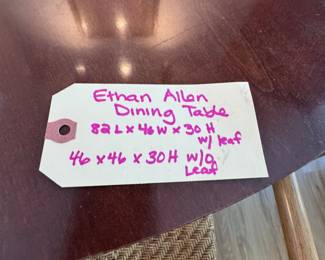 Ethan Allen
Dining Table
82 L x 46 W x 30 H
w/ leaf
46 x 46 x 30 H w/o
Leaf